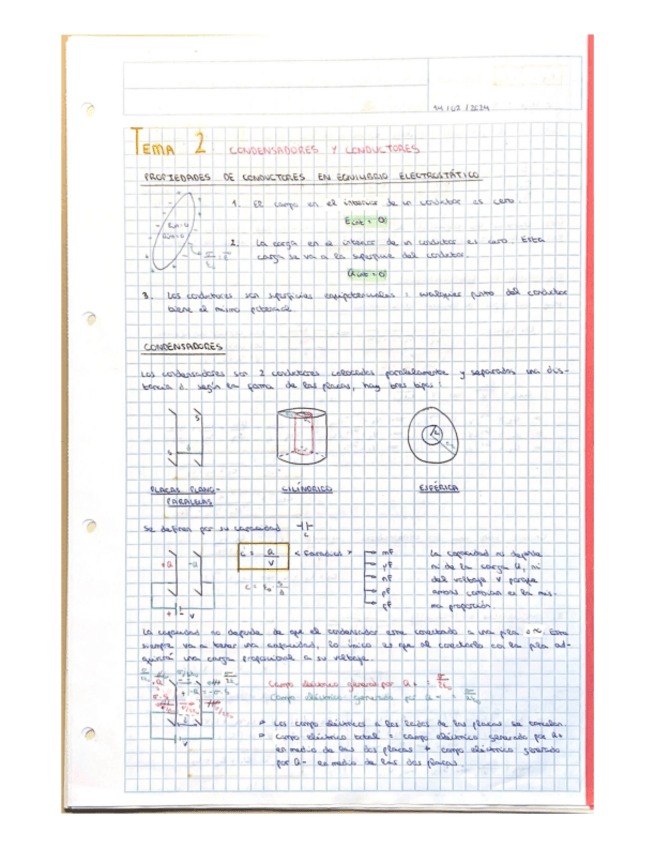 14/02/2024
TEMA 2 CONDENSADORES Y CONDUCTORES
PROPIEDADES DE CONDUCTORES EN EQUILIBRIO ELECTROSTÁTICO
1. El campo en el interior de un conductor es cero.
E int = 0
2. La carga en el interior de un conductor es cero. Esta
carga se va a la superficie del conductor.
Q int = 0
3. Los conductores son superficies equipotenciales: cualquier punto del conductor
tiene el mismo potencial.
CONDENSADORES
Los condensadores son 2 conductores colocados paralelamente y separados una dis-
tancia d. Según la forma de las placas, hay tres tipos:
S
S
d
PLACAS PLANO-
PARALELAS
CILÍNDRICO
ESFÉRICA
Se definen por su capacidad
C
+Q -Q
+ - V
C = Q/V
< Faradios >
mF
μF
nF
pF
La capacidad no depende
ni de la carga Q, ni
del voltaje V porque
ambos cambian en la mis-
ma proporción.
La capacidad no depende de que el condensador esté conectado a una pila
siempre va a tener una capacidad, lo único es que al conectarlo con la pila ad-
quirirá una carga proporcional a su voltaje.
Campo eléctrico generado por Q+ =
Campo eléctrico generado por Q- =
Los campos eléctricos a los lados de las placas se cancelan.
Campo eléctrico total = campo eléctrico generado por Q+
en medio de las dos placas + campo eléctrico generado
por Q- en medio de las dos placas.